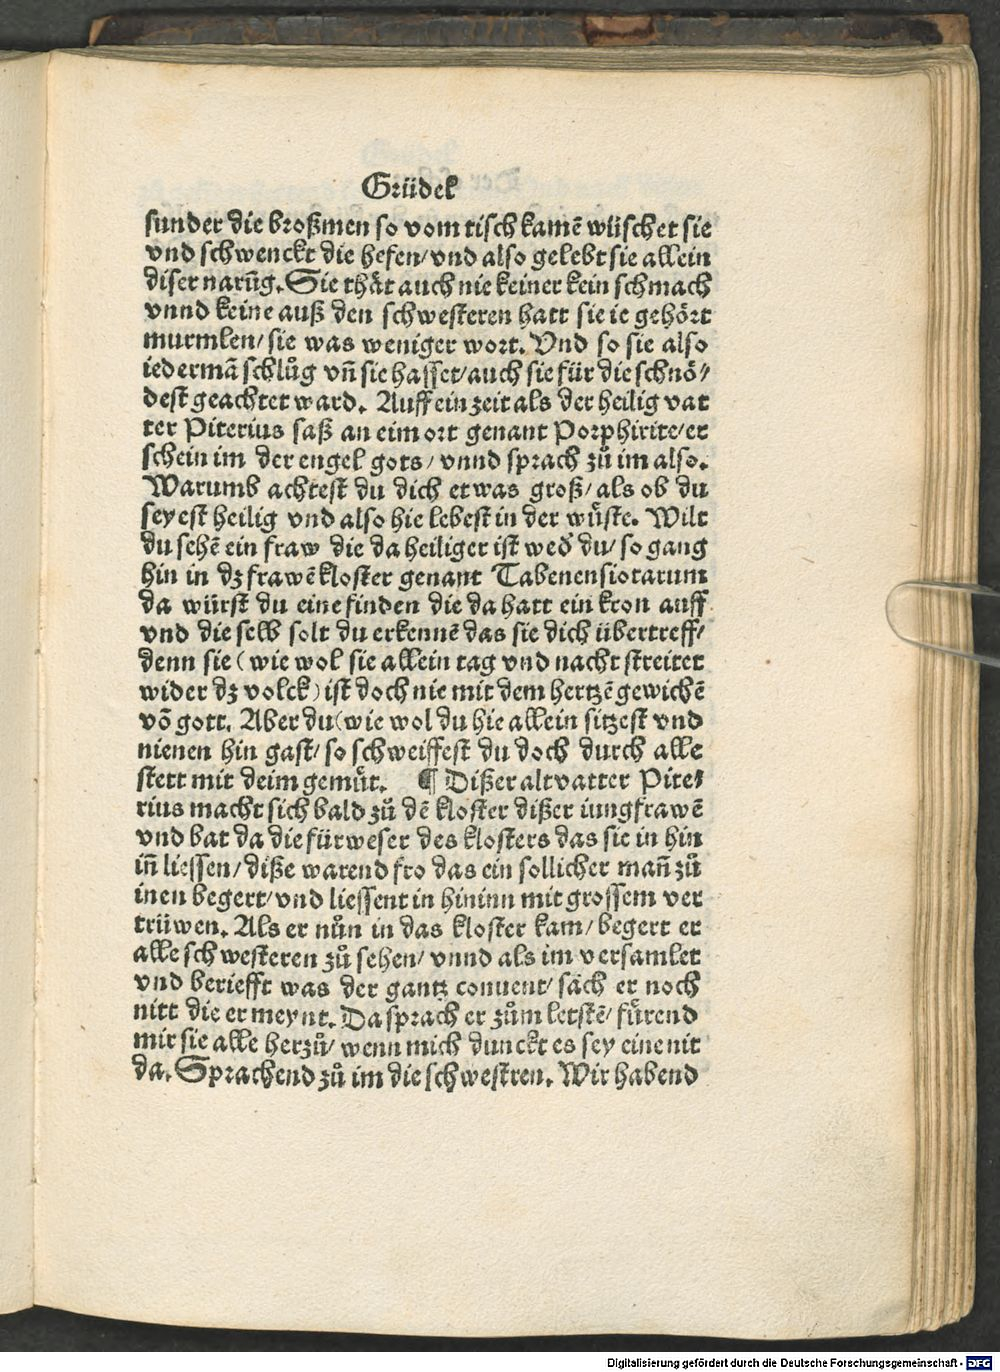 Grüdek
sunder die broßmen so vom tisch kamē wüschet sie
vnd schwenckt die hefen/ vnd also gelebt sie allein
diser narūg. Sie thåt auch nie keiner kein schmach
vnnd keine auß den schwesteren hatt sie ie gehört
murmlen/ sie was weniger wort. Vnd so sie also
iedermā schlůg vñ sie hasset/ auch sie für die schnö⸗
dest geachtet ward. Auff ein zeit als der heilig vat
ter Piterius saß an eim ort genant Porphirite/ er
schein im der engel gots/ vnnd sprach zů im also.
Warumb achtest du dich etwas groß/ als ob du
seyest heilig vnd also hie lebest in der wüste. Wilt
du sehē ein fraw die da heiliger ist wed' du/ so gang
hin in dz frawē kloster genant Tabenensiotarum
da würst du eine finden die da hatt ein kron auff
vnd die selb solt du erkennē das sie dich übertreff/
denn sie (wie wol sie allein tag vnd nacht streitet
wider dz volck) ist doch nie mit dem hertzē gewichē
vō gott. Aber du (wie wol du hie allein sitzest vnd
nienen hin gast/ so schweiffest du doch durch alle
stett mit deim gemůt. ¶ Dißer altvatter Pite⸗
rius macht sich bald zů dē kloster dißer iungfrawē
vnd bat da die fürweser des klosters das sie in hin
iñ liessen/ diße warend fro das ein sollicher mañ zů
inen begert/ vnd liessent in hininn mit grossem ver
trüwen. Als er nůn in das kloster kam/ begert er
alle schwesteren zů sehen/ vnnd als im versamlet
vnd beriefft was der gantz conuent/ såch er noch
nitt die er meynt. Da sprach er zům letstē/ fürend
mir sie alle herzů/ wenn mich dunckt es sey eine nit
da. Sprachend zů im die schwestren. Wir habend
Digitalisierung gefördert durch die Deutsche Forschungsgemeinschaft - DFG